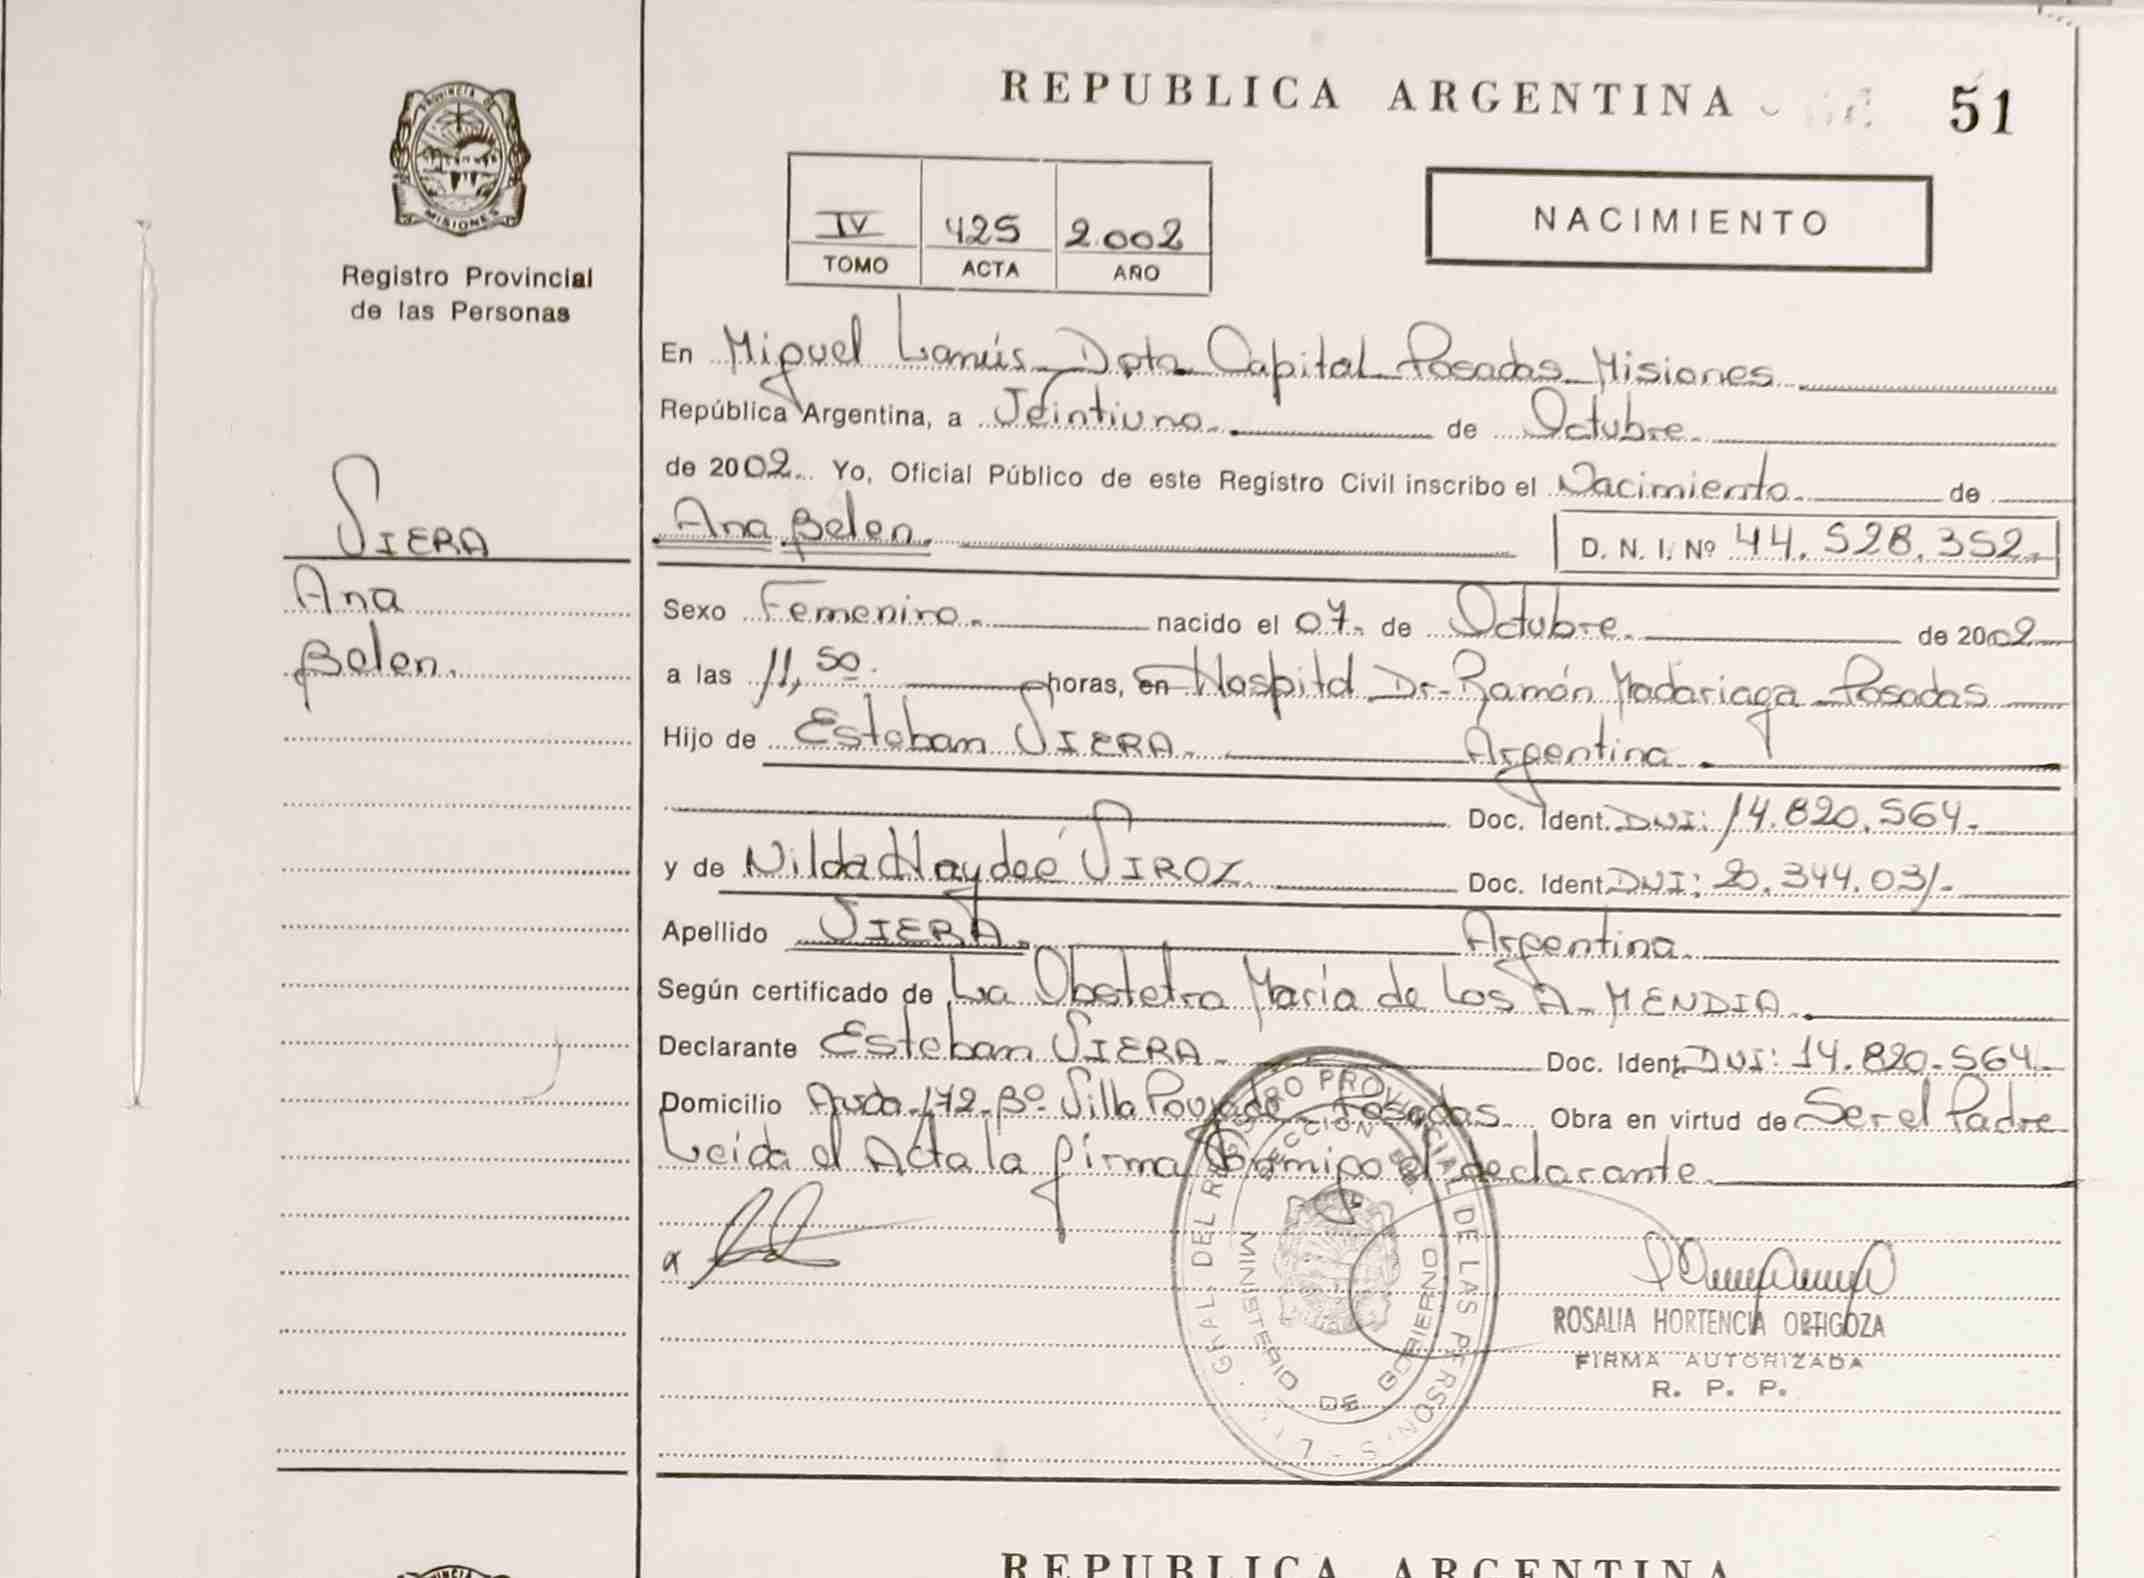 REPUBLICA ARGENTINA
51
PROVINCIA DE
MISIONES
Registro Provincial
de las Personas
IV 425 2.002
TOMO ACTA AÑO
NACIMIENTO
En Miguel Lanús Dpto Capital Posadas Misiones
República Argentina, a Veintiuno de Octubre
de 2002. Yo, Oficial Público de este Registro Civil inscribo el Nacimiento de
VIERA
Ana
Belen.
Ana Belen. D. N. I. Nº 44.528.352
Sexo Femenino. nacido el 07 de Octubre. de 2002
a las 11,50. horas, en Hospital Dr. Ramón Madariaga Posadas
Hijo de Esteban VIERA. Argentina.
Doc. Ident. DNI: 14.820.564.
y de Nilda Haydeé Doc. Ident. DNI: 20.344.031.
Apellido VIERA. Argentina.
Según certificado de La Obstetra María de Los A. MENDIA.
Declarante Esteban VIERA. Doc. Ident. DNI: 14.820.564.
Domicilio 172 Bº Villa Poujade Posadas. Obra en virtud de Ser el Padre
Leida el Acta la firma Conmigo el declarante.
ROSALIA HORTENCIA ORTIGOZA
FIRMA AUTORIZADA
R. P. P.
GRAL. DEL REGISTRO PROVINCIAL DE LAS PERSONAS
MINISTERIO DE GOBIERNO
REPUBLICA ARGENTINA